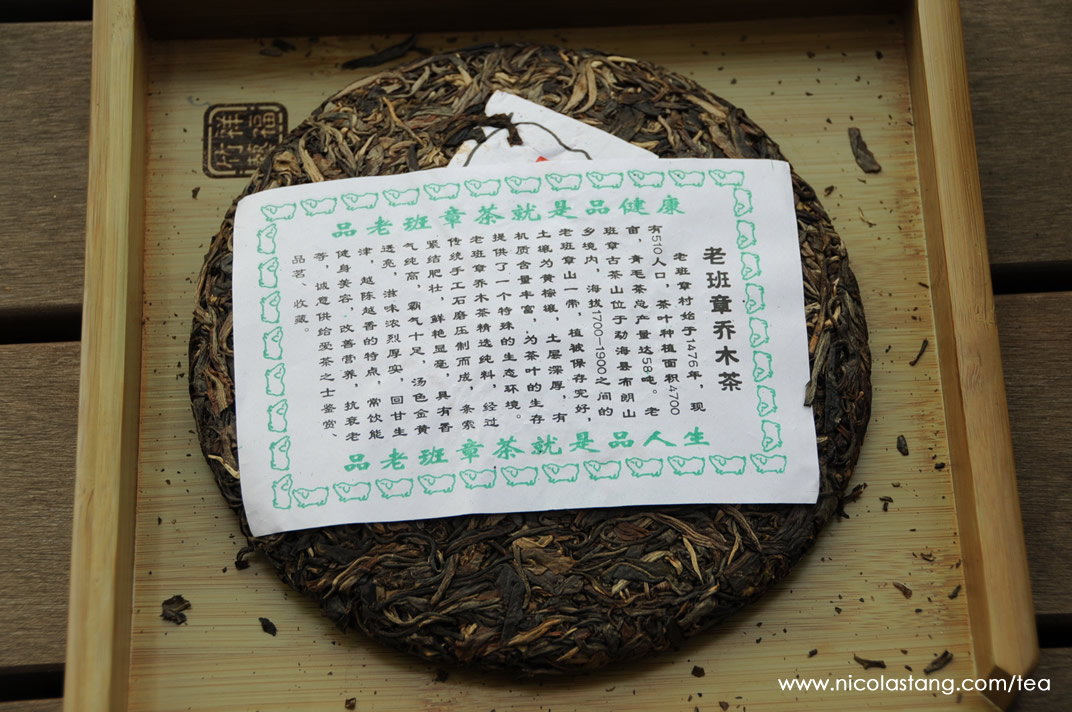 品老班章茶就是品健康
老班章乔木茶
老班章村始于1476年，现
有510人口，茶叶种植面积4700
亩，青毛茶总产量达58吨。老
班章古茶山位于勐海县布朗山
乡境内，海拔1700—1900之间的
老班章山一带，植被保存完好，
土壤为黄棕壤，土层深厚，有
机质含量丰富，为茶叶的生存
提供了一个特殊的生态环境。
老班章乔木茶精选纯料，经过
传统手工石磨压制而成，条索
紧结肥壮，鲜艳显毫，具有香
气纯高，霸气十足，汤色金黄
透亮，滋味浓烈厚实，回甘生
津，越陈越香的特点，常饮能
健身美容，改善营养，抗衰老
等，诚意供给爱茶之士鉴赏、
品茗、收藏。
品老班章茶就是品人生
www.nicolastang.com/tea